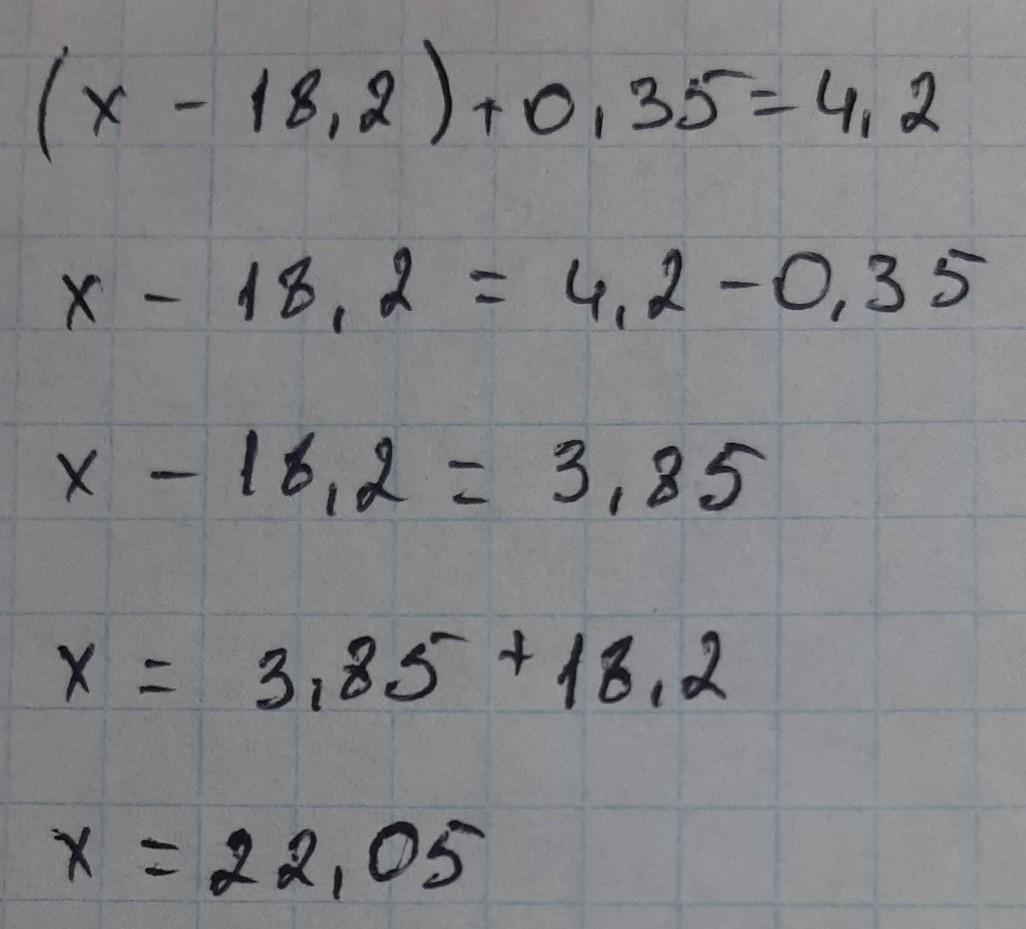 (x - 18,2) + 0,35 = 4,2
x - 18,2 = 4,2 - 0,35
x - 18,2 = 3,85
x = 3,85 + 18,2
x = 22,05